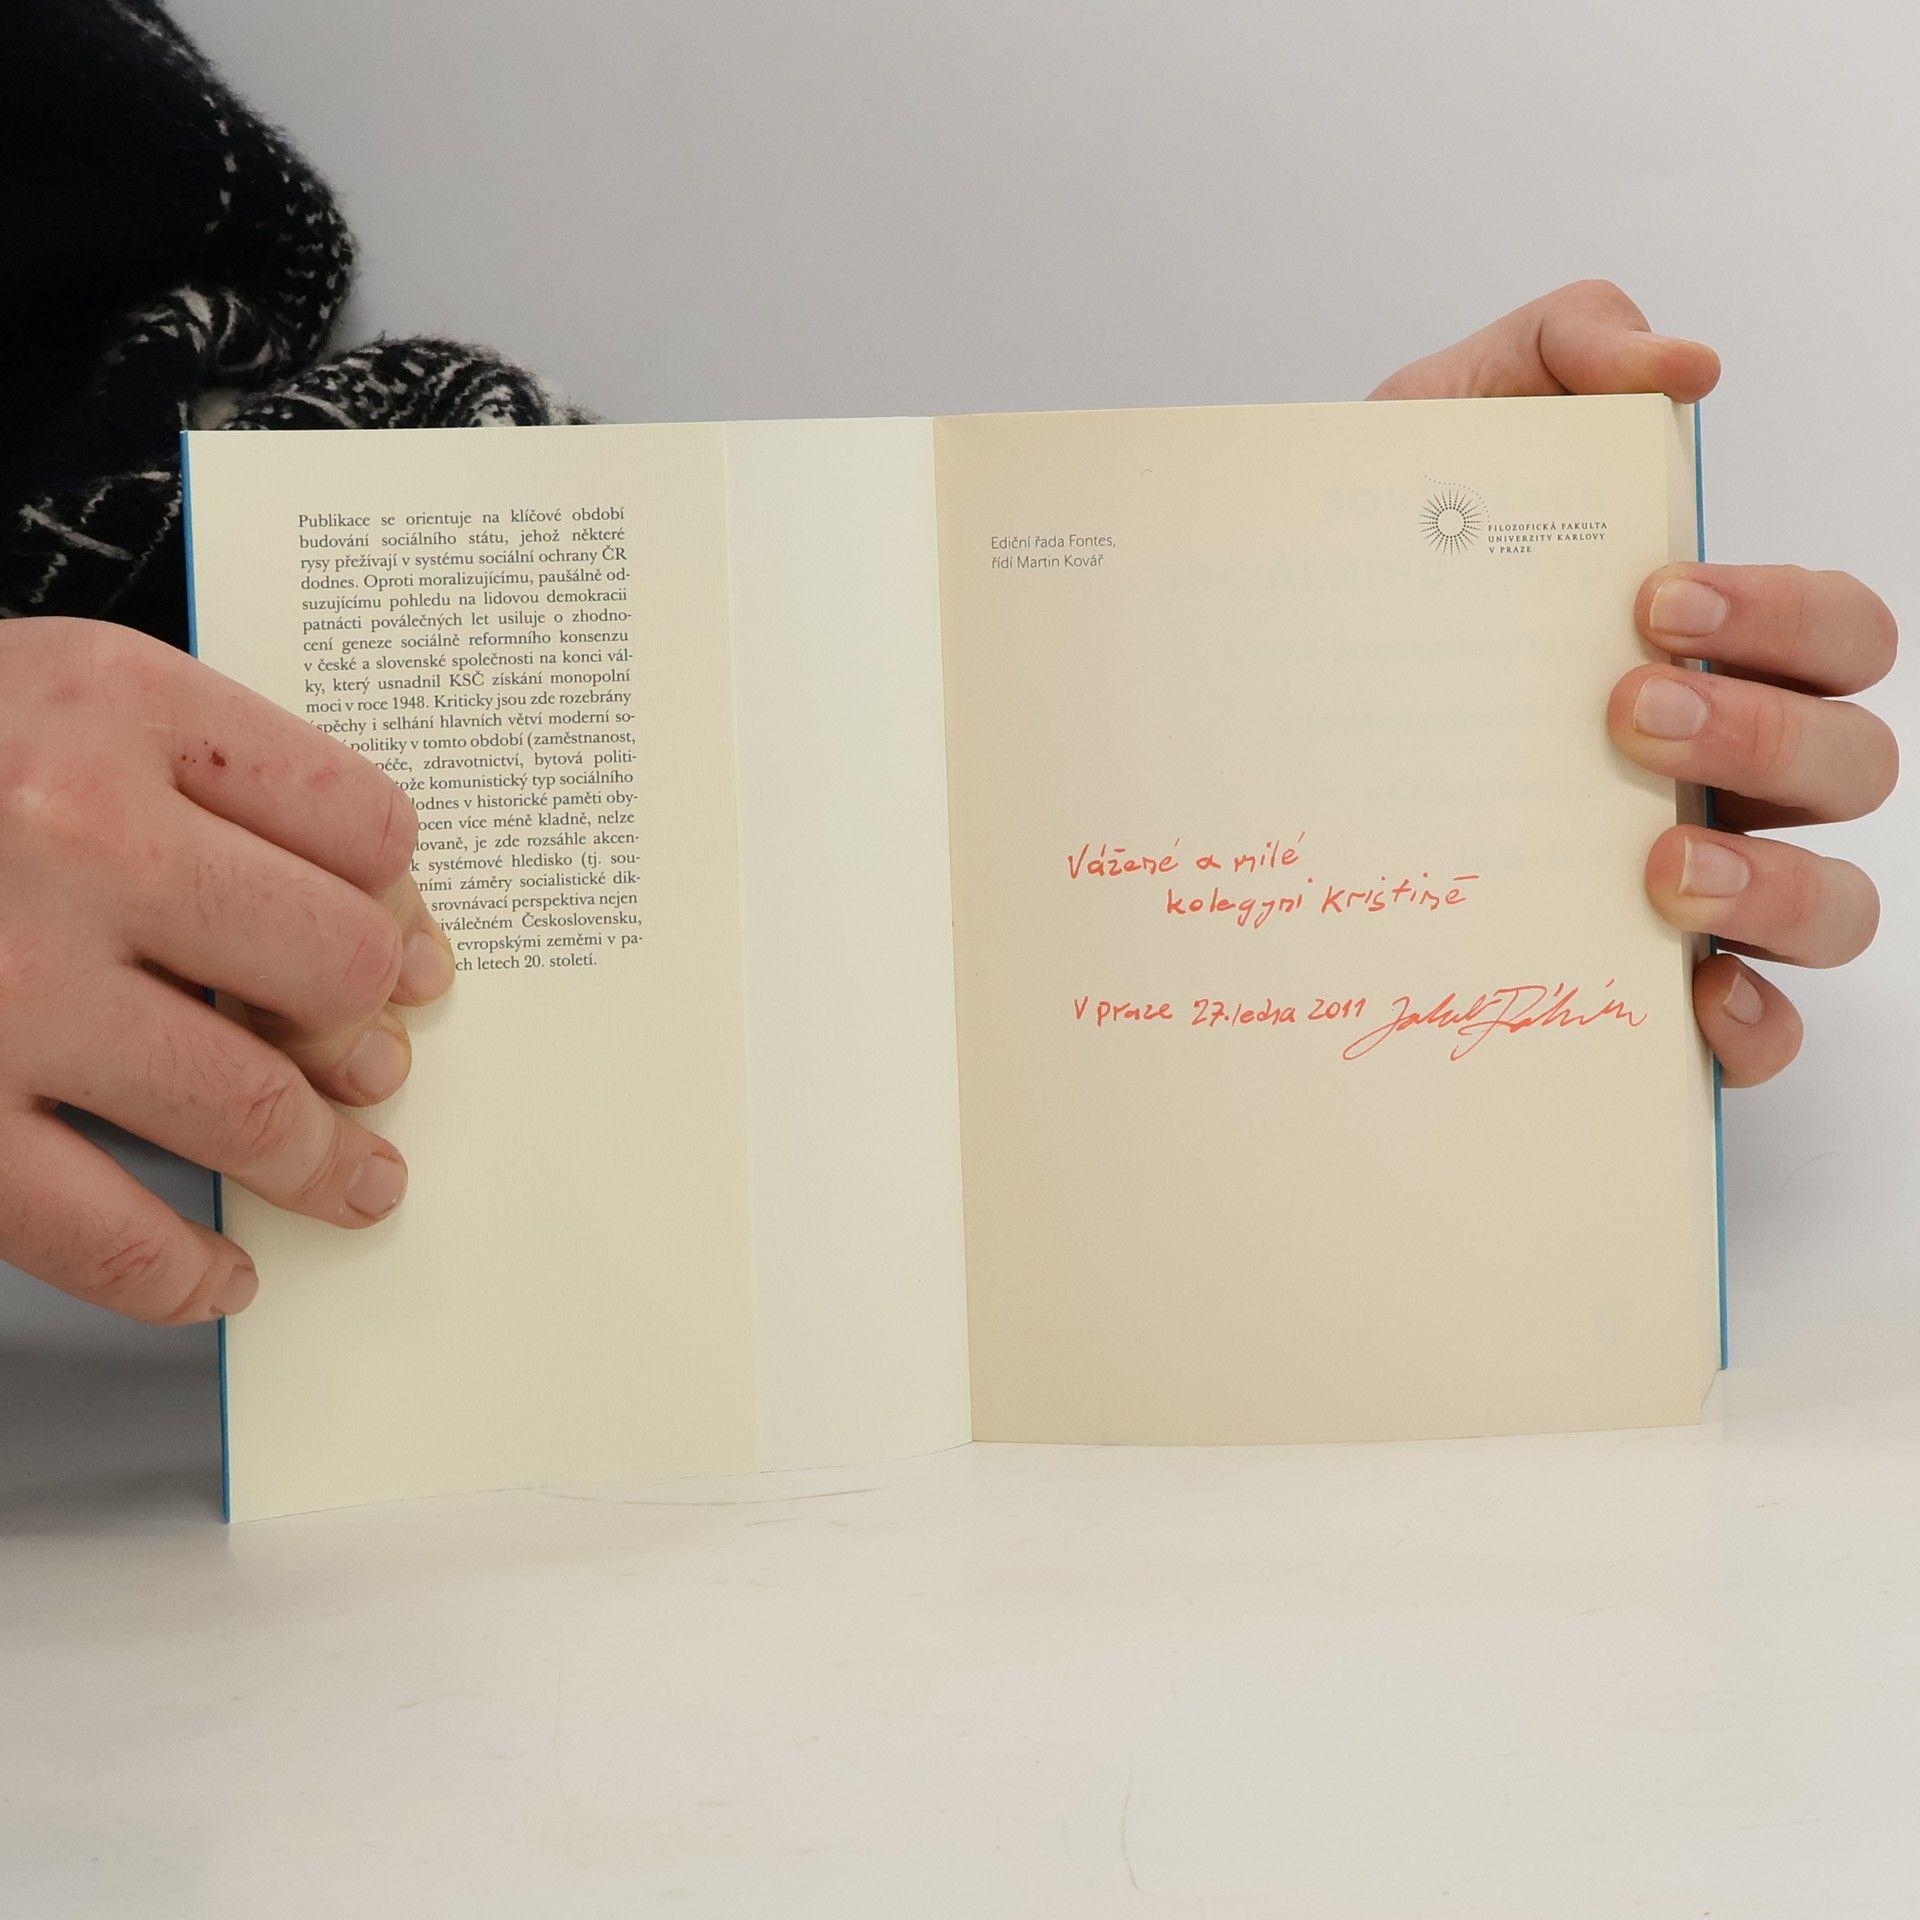 Publikace se orientuje na klíčové období
budování sociálního státu, jehož některé
rysy přežívají v systému sociální ochrany ČR
dodnes. Oproti moralizujícímu, paušálně od-
suzujícímu pohledu na lidovou demokracii
patnácti poválečných let usiluje o zhodno-
cení geneze sociálně reformního konsenzu
v české a slovenské společnosti na konci vál-
ky, který usnadnil KSČ získání monopolní
moci v roce 1948. Kriticky jsou zde rozebrány
spěchy i selhání hlavních větví moderní so-
politiky v tomto období (zaměstnanost,
péče, zdravotnictví, bytová politi-
tože komunistický typ sociálního
dodnes v historické paměti oby-
ocen více méně kladně, nelze
lovaně, je zde rozsáhle akcen-
k systémové hledisko (tj. sou-
ními záměry socialistické dik-
srovnávací perspektiva nejen
iválečném Československu,
evropskými zeměmi v pa-
ch letech 20. století.
Ediční řada Fontes,
řídí Martin Kovář
FILOZOFICKÁ FAKULTA
UNIVERZITY KARLOVY
V PRAZE
Vážené a milé
kolegyni Kristině
V Praze 27. ledna 2011 Jakub Rákosník